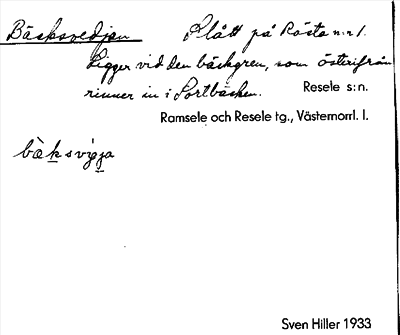 Bäcksvedjan Slått på Rösta n:r 1.
Ligger vid den bäckgren, som österifrån
rinner in i Sortbäcken. Resele s:n.
Ramsele och Resele tg., Västernorrl. l.
bæksvija
Sven Hiller 1933